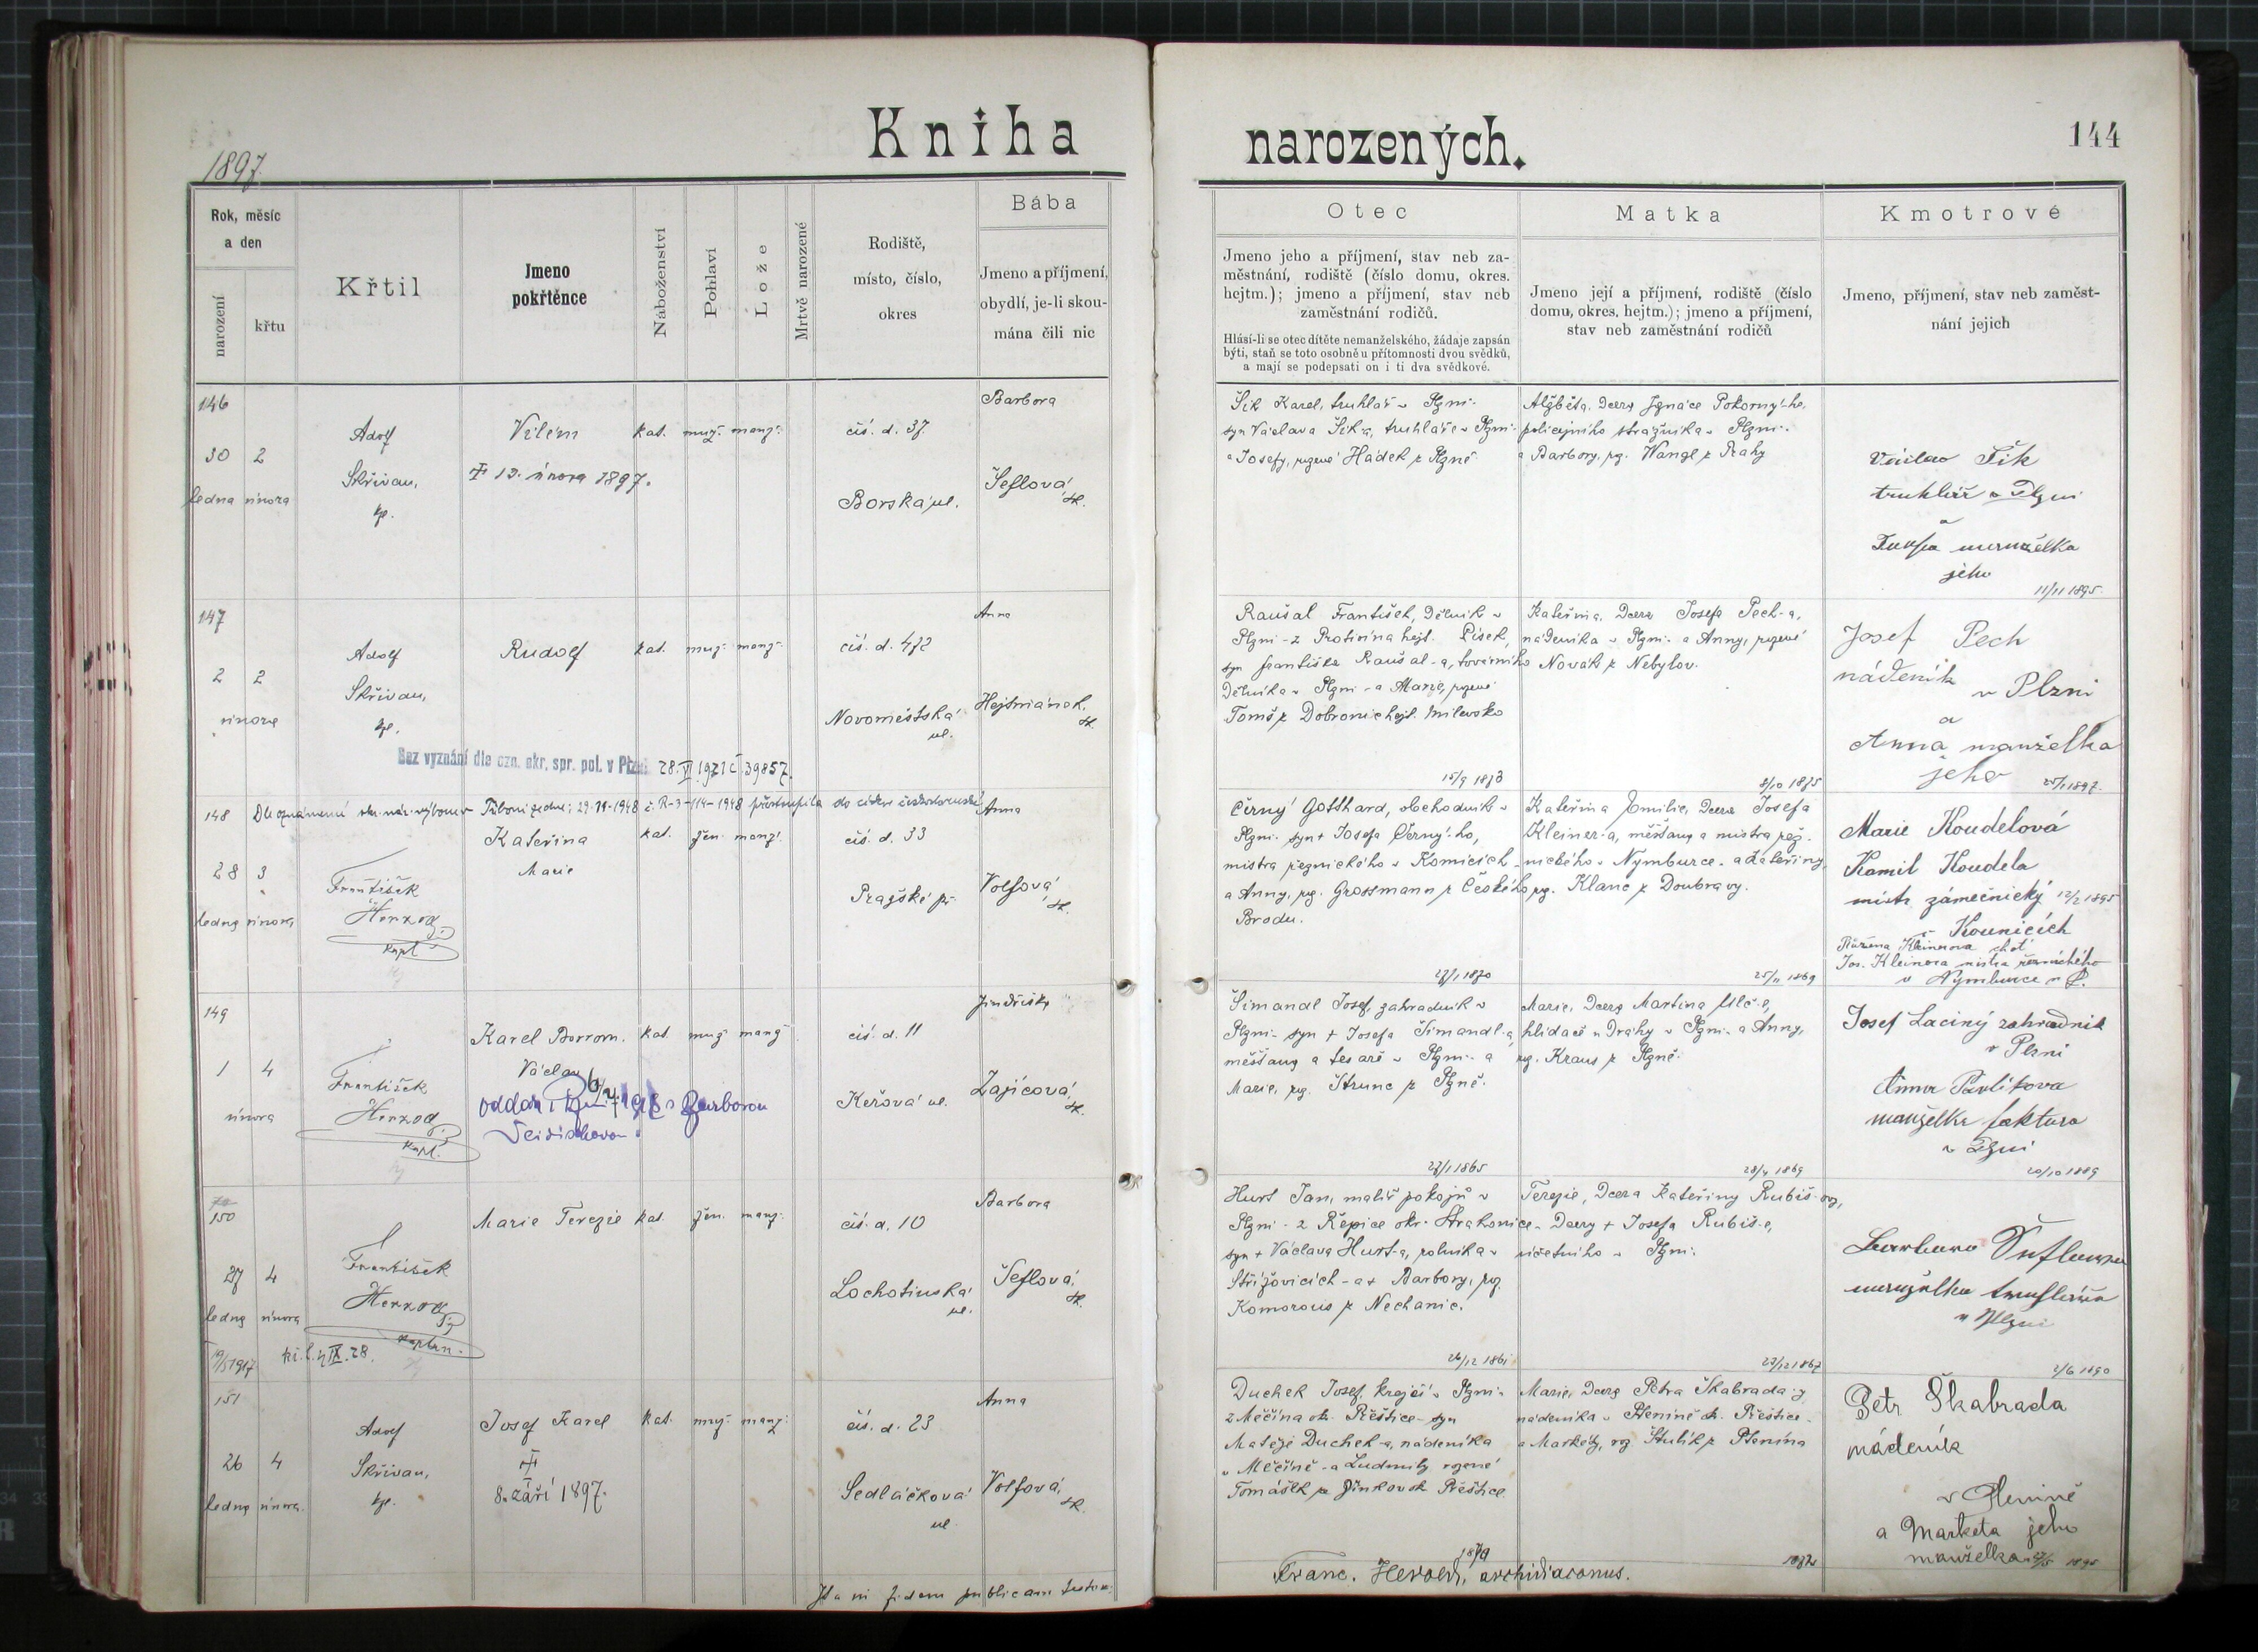 Kniha
narozených.
144
1897.
Rok, měsíc
a den
narození
křtu
Křtil
Jmeno
pokřtěnce
Náboženství
Pohlaví
Lože
Mrtvě narozené
Rodiště,
místo, číslo,
okres
Bába
Jmeno a příjmení,
obydlí, je-li skou-
mána čili nic
Otec
Jmeno jeho a příjmení, stav neb za-
městnání, rodiště (číslo domu, okres.
hejtm.); jmeno a příjmení, stav neb
zaměstnání rodičů.
Hlásí-li se otec dítěte nemanželského, žádaje zapsán
býti, staň se toto osobně u přítomnosti dvou svědků,
a mají se podepsati on i ti dva svědkové.
Matka
Jmeno její a příjmení, rodiště (číslo
domu, okres. hejtm.); jmeno a příjmení,
stav neb zaměstnání rodičů
Kmotrové
Jmeno, příjmení, stav neb zaměst-
nání jejich
146
30 2
ledna února
Adolf
Skřivan,
kp.
Vilém
13. února 1897.
kat. muž. manž.
čís. d. 37
Borská ul.
Barbora
Šeflová,
zk.
Šik Karel, truhlář v Plzni-
syn Václava Šik-a, truhláře v Plzni-
a Josefy, rozené Hádek z Plzně
Alžběta, dcera Ignáce Pokorný-ho,
policejního strážníka v Plzni-
a Barbory, roz. Wangl z Prahy
Václav Šik
truhlář v Plzni
a
manželka
jeho
11/11 1895
147
2 2
února
Adolf
Skřivan,
kp.
Rudolf
kat. muž. manž.
čís. d. 472
Novoměstská
ul.
Anna
Hejtmánek,
zk.
Bez vyznání dle ozn. okr. spr. pol. v Plzni 28. VI 1921 č. 39857.
Raušal František, dělník v
Plzni - z Protivína hejt. Písek,
syn Františka Raušal-a, továrního
dělníka v Plzni - a Marie, rozené
Tomš z Dobronic hejt. Milevsko
15/9 1873
Kateřina, dcera Josefa Pech-a,
nádeníka v Plzni- a Anny, rozené
Novák z Nebylov.
8/10 1875
Josef Pech
nádeník
v Plzni
a
Anna manželka
jeho
25/1 1897.
148
Dle oznámení okr. nár. výboru v 29-VI-1948 č. R-3-114-1948 přestoupila do církve českobratrské
28 3
ledna února
František
Herzog
kapl.
Kateřina
Marie
kat. žen. manž.
čís. d. 33
Pražské př.
Anna
Volfová,
zk.
Černý Gotthard, obchodník v
Plzni- syn + Josefa Černý-ho,
mistra řeznického v Kounicích -
a Anny, roz. Grossmann z Českého
Brodu.
27/1 1870
Kateřina Emilie, dcera Josefa
Kleiner-a, měšťana a mistra řez-
nického v Nymburce - a Kateřiny,
roz. Klanc z Doubravy.
25/11 1869
Marie Koudelová
Kamil Koudela
mistr zámečnický 12/2 1895
v Kounicích
Růžena Kleinerova choť
Jos. Kleinera mistra řeznického
v Nymburce n L.
149
1 4
února
František
Herzog
kapl.
Karel Borrom.
Václav
oddán s Barborou
kat. muž. manž.
čís. d. 11
Keřová ul.
Jindřiška
Zajícová,
zk.
Šimandl Josef, zahradník v
Plzni- syn + Josefa Šimandl-a,
měšťana a tesaře v Plzni- a
Marie, roz. Štrunc z Plzně.
27/1 1865
Marie, dcera Martina Ulč-e,
hlídače u dráhy v Plzni- a Anny,
roz. Kraus z Plzně.
28/4 1869
Josef Laciný zahradník
v Plzni
Anna Pavlíkova
manželka faktora
v Plzni
20/10 1889
150
27 4
ledna února
František
Herzog
kaplan.
19/5 1917 kř. l. IX. 28.
Marie Terezie
kat. žen. manž.
čís. d. 10
Lochotínská
ul.
Barbora
Šeflová,
zk.
Hurt Jan, malíř pokojů v
Plzni - z Řepice okr. Strakonice -
syn + Václava Hurt-a, rolníka v
Střížovicích - a + Barbory, roz.
Komorous z Nechanic.
26/12 1861
Terezie, dcera Kateřiny Rubiš-ové,
dcery + Josefa Rubiš-e,
účetního v Plzni-
23/12 1867
Barbara Šeflova
manželka truhláře
v Plzni
2/6 1890
151
26 4
ledna února
Adolf
Skřivan,
kp.
Josef Karel
8. září 1897.
kat. muž. manž.
čís. d. 23
Sedláčková
ul
Anna
Volfová,
zk.
Duchek Josef, krejčí v Plzni-
z Měčína ok. Přeštice - syn
Matěje Duchek-a, nádeníka
v Měčíně - a Ludmily rozené
Tomášek z ok Přeštice.
1870
Marie, dcera Petra Škabrada-y
nádeníka v Pteníně ok. Přeštice -
a Markéty, roz Štulík z Ptenína
1872
Petr Škabrada
nádeník
v Ptenině
a Marketa jeho
manželka 1895
Ita in fidem publicam testor:
Franc. Herold, archidiaconus.